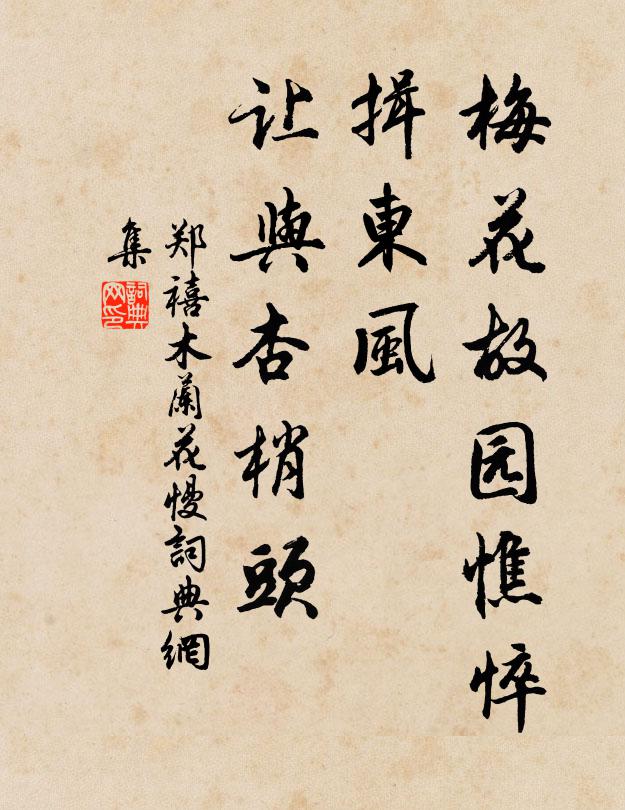 梅花故园憔悴
揖東風
让與杏梢頭
郑禧木蘭花慢詞典網
集
詞典
网印